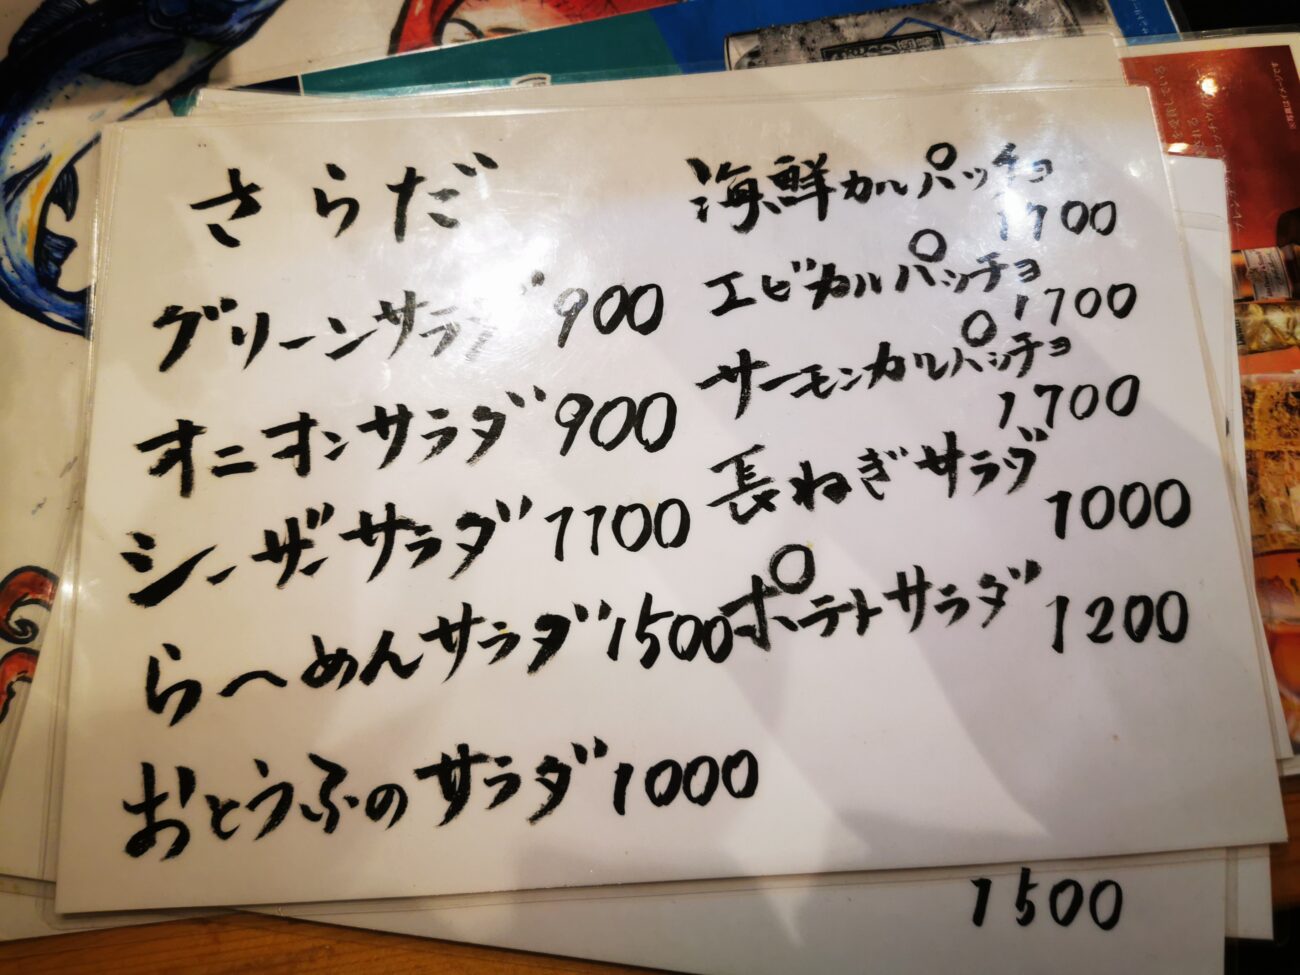 さらだ
グリーンサラダ 900
オニオンサラダ 900
シーザーサラダ 1100
らーめんサラダ 1500
おとうふのサラダ 1000
海鮮カルパッチョ
1700
エビカルパッチョ
1700
サーモンカルパッチョ
1700
長ねぎサラダ
1000
ポテトサラダ
1200
1500
※写真はイメージです